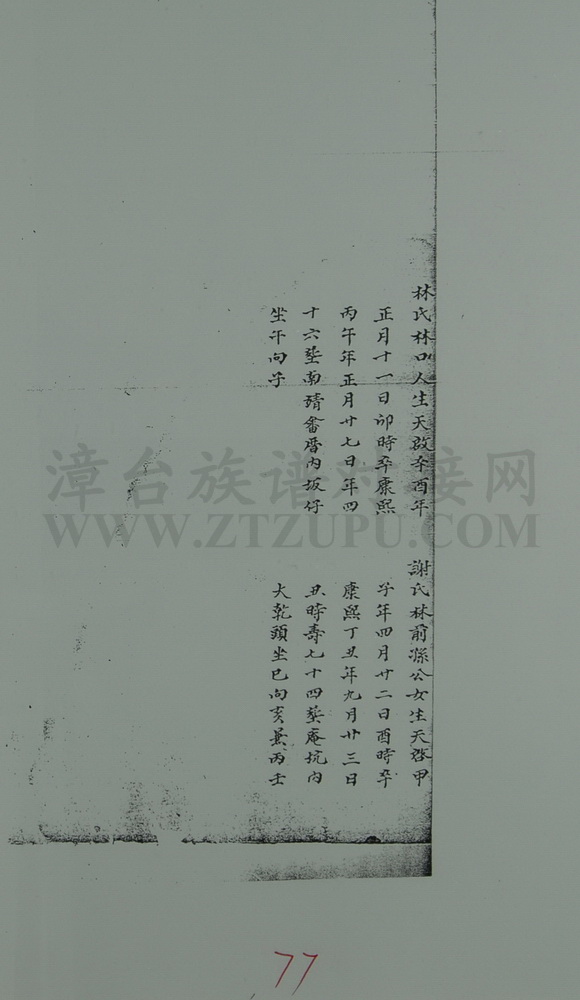 林氏林口人生天啟辛酉年
正月十一日卯時卒康熙
丙午年正月廿七日年四
十六塟南靖畲厝内坂仔
坐午向子
謝氏林前縣公女生天啓甲
子年四月廿二日酉時卒
康熙丁丑年九月廿三日
丑時壽七十四塟庵坑内
大乾頭坐巳向亥兼丙壬
漳台族谱对接网
WWW.ZTZUPU.COM
77